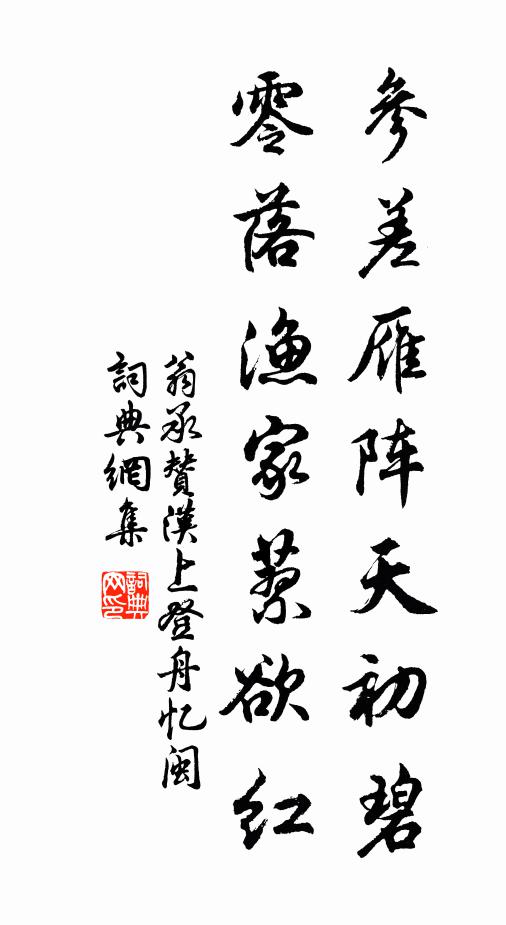 參差雁阵天初碧
零落漁家蓼欲红
翁承贊漢上登舟忆闽
詞典網集
詞典网印